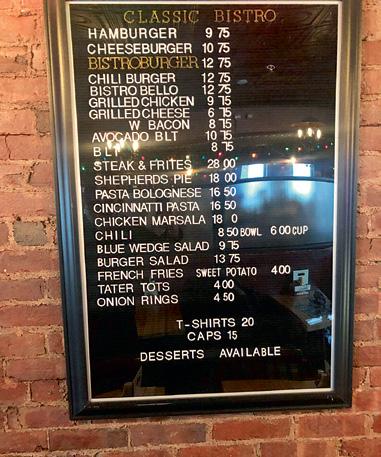 CLASSIC BISTRO
HAMBURGER 9 75
CHEESEBURGER 10 75
BISTROBURGER 12 75
CHILI BURGER 12 75
BISTRO BELLO 12 75
GRILLED CHICKEN 9 75
GRILLED CHEESE 6 75
W BACON 8 75
AVOCADO BLT 10 75
BLT 8 75
STEAK & FRITES 28 00
SHEPHERDS PIE 18 00
PASTA BOLOGNESE 16 50
CINCINNATI PASTA 16 50
CHICKEN MARSALA 18 0
CHILI 8 50 BOWL 6 00 CUP
BLUE WEDGE SALAD 9 75
BURGER SALAD 13 75
FRENCH FRIES SWEET POTATO 4 00
TATER TOTS 4 00
ONION RINGS 4 50
T-SHIRTS 20
CAPS 15
DESSERTS AVAILABLE